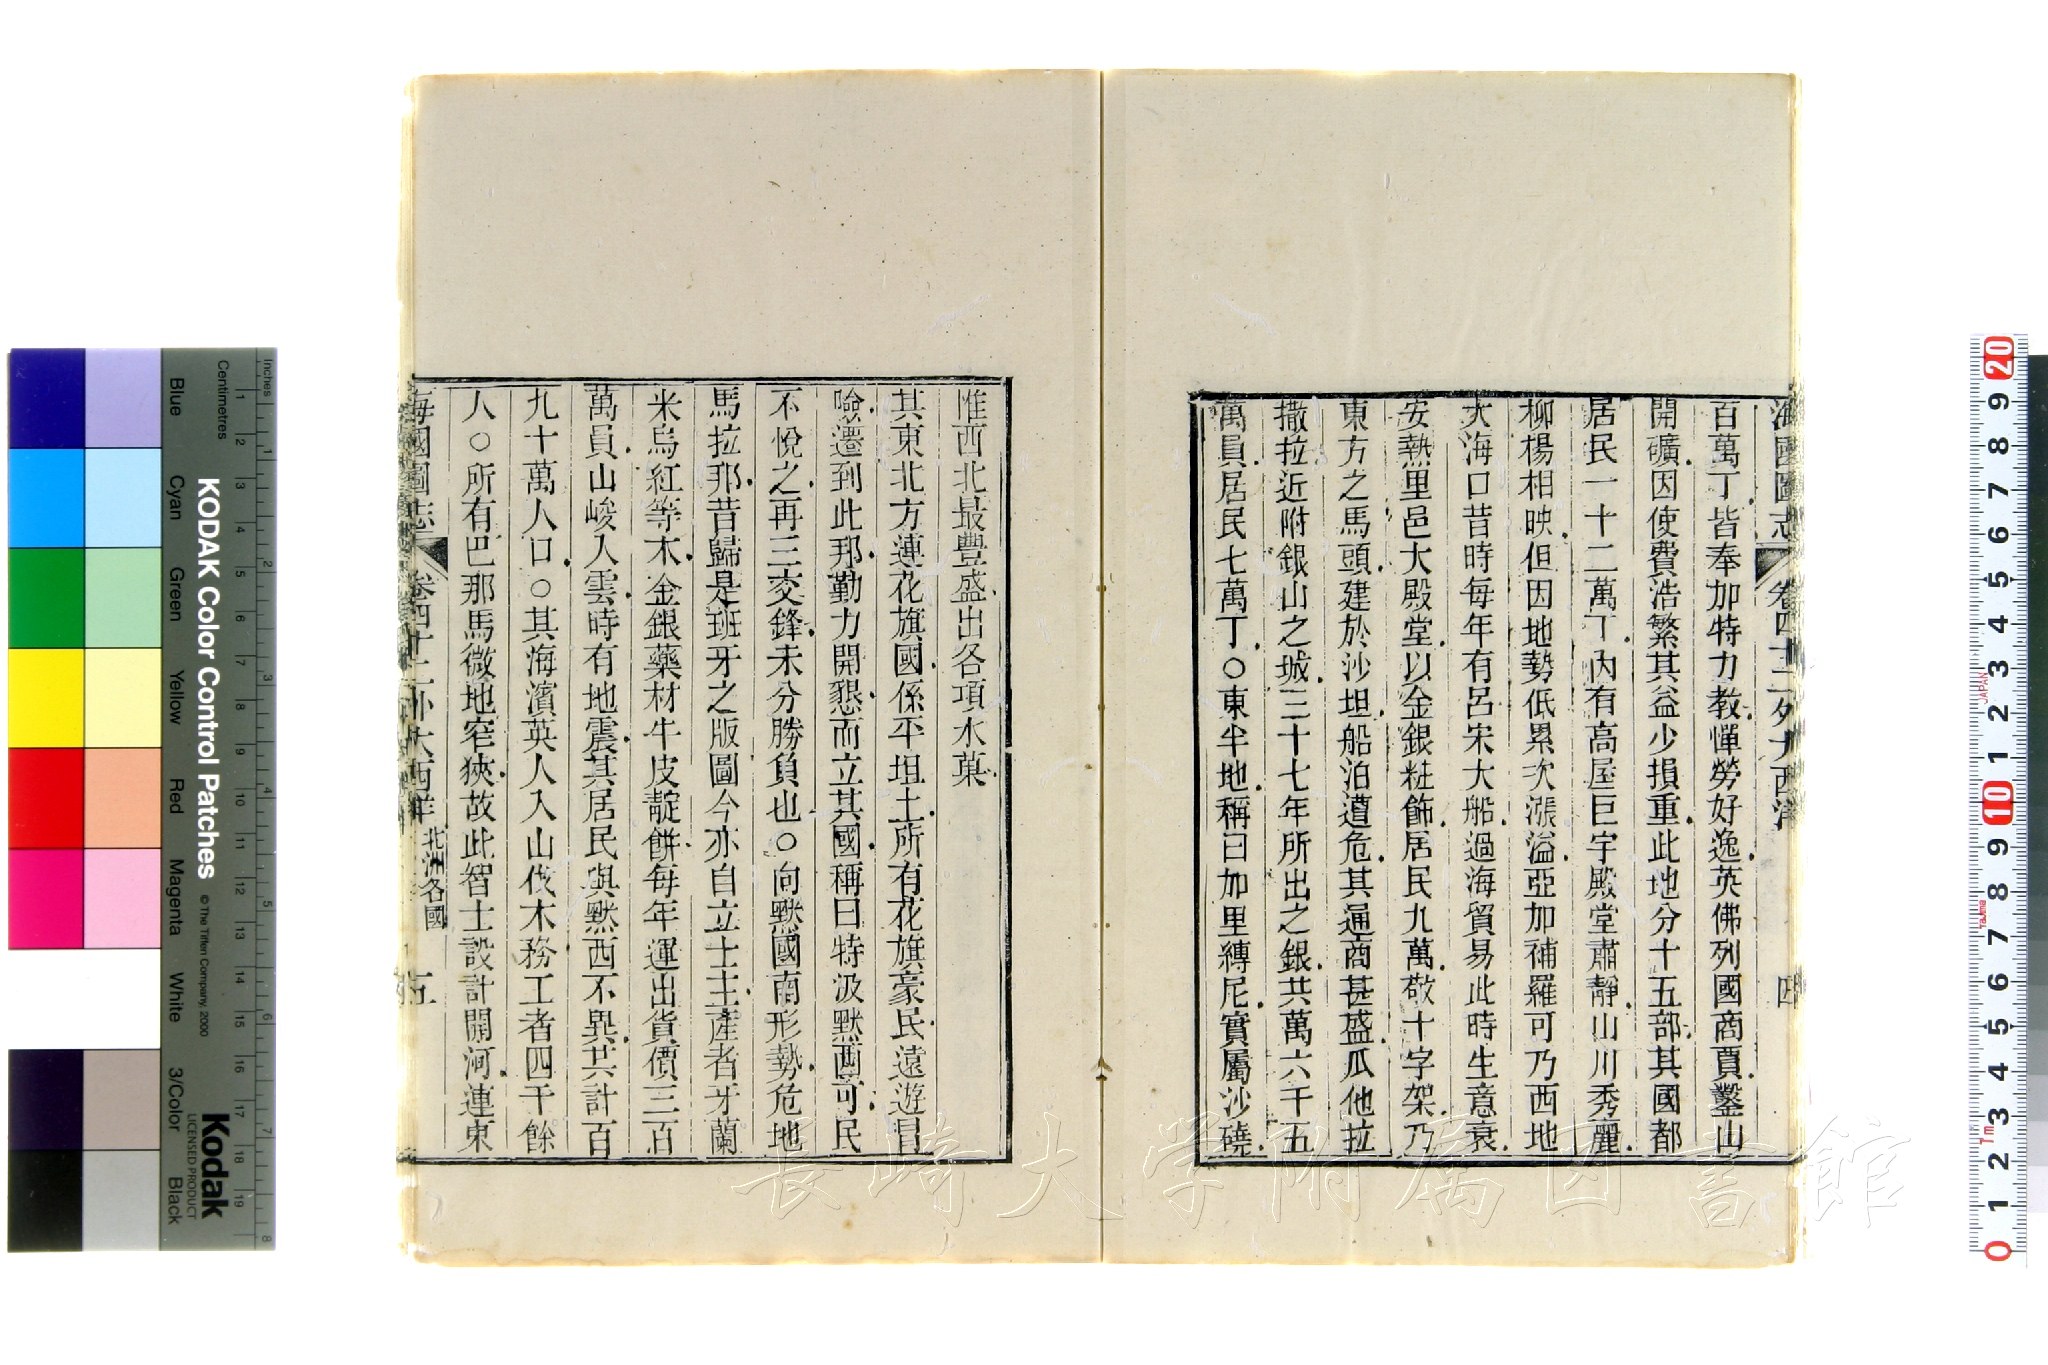 海國圖志 卷四十二 外大西洋 四
百萬丁皆奉加特力教憚勞好逸英佛列國商賈鑿山
開礦因使費浩繁其益少損重此地分十五部其國都
居民一十二萬丁內有高屋巨宇殿堂肅靜山川秀麗
柳楊相映但因地勢低累次漲溢亞加補羅可乃西地
大海口昔時每年有呂宋大船過海貿易此時生意衰
安熱里邑大殿堂以金銀粧飾居民九萬敬十字架乃
東方之馬頭建於沙坦船泊道危其通商甚盛瓜他拉
撒拉近附銀山之城三十七年所出之銀共萬六千五
萬員居民七萬丁○東半地稱曰加里縳尼實屬沙磽
惟西北最豐盛出各項水菓
其東北方連花旗國係平坦土所有花旗豪民遠遊冒
險遷到此那勤力開懇而立其國稱曰特汲默西可民
不悅之再三交鋒未分勝負也○向默國南形勢危地
馬拉那昔歸是班牙之版圖今亦自立土主產者牙蘭
米烏紅等木金銀藥材牛皮靛餅每年運出貨價三百
萬員山峻入雲時有地震其居民與默西不異共計百
九十萬人口○其海濱英人入山伐木務工者四千餘
人○所有巴那馬微地窄狹故此智士設計開河連東
海國圖志 卷四十二 外大西洋 北洲各國 五
KODAK Color Control Patches
© The Tiffen Company, 2000
Kodak
LICENSED PRODUCT
Inches
Centimetres
Blue
Cyan
Green
Yellow
Red
Magenta
White
3/Color
Black
長崎大学附属図書館